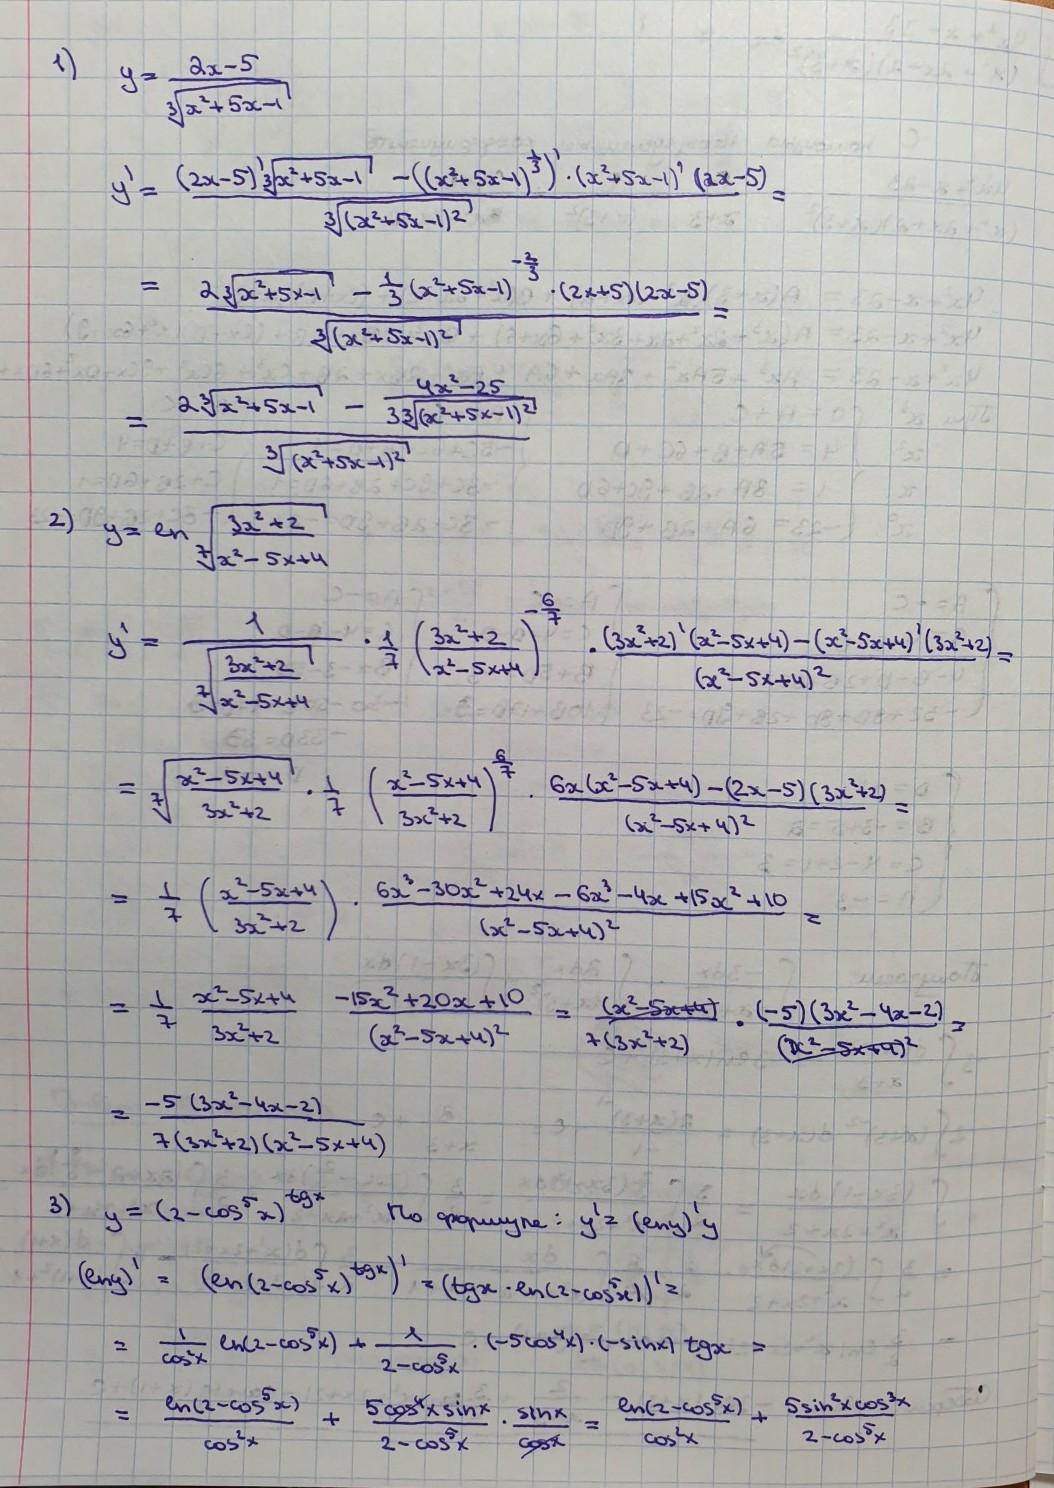 1) y = (2x-5)/∛(x²+5x-1)
y' = ((2x-5)'∛(x²+5x-1) - ((x²+5x-1)^(1/3))' · (x²+5x-1)' (2x-5))/∛((x²+5x-1)²) =
= (2∛(x²+5x-1) - 1/3 (x²+5x-1)^(-2/3) · (2x+5)(2x-5))/∛((x²+5x-1)²) =
= (2∛(x²+5x-1) - (4x²-25)/(3∛((x²+5x-1)²)))/∛((x²+5x-1)²)
2) y = ln ⁷√((3x²+2)/(x²-5x+4))
y' = 1/⁷√((3x²+2)/(x²-5x+4)) · 1/7 ((3x²+2)/(x²-5x+4))^(-6/7) · ((3x²+2)'(x²-5x+4) - (x²-5x+4)'(3x²+2))/(x²-5x+4)² =
= ⁷√((x²-5x+4)/(3x²+2)) · 1/7 ((x²-5x+4)/(3x²+2))^(6/7) · (6x(x²-5x+4) - (2x-5)(3x²+2))/(x²-5x+4)² =
= 1/7 ((x²-5x+4)/(3x²+2)) · (6x³-30x²+24x-6x³-4x+15x²+10)/(x²-5x+4)² =
= 1/7 (x²-5x+4)/(3x²+2) (-15x²+20x+10)/(x²-5x+4)² = (x²-5x+4)/(7(3x²+2)) · ((-5)(3x²-4x-2))/(x²-5x+4)² =
= (-5(3x²-4x-2))/(7(3x²+2)(x²-5x+4))
3) y = (2-cos⁵x)^(tgx) По формуле: y' = (lny)'y
(lny)' = (ln(2-cos⁵x)^(tgx))' = (tgx · ln(2-cos⁵x))' =
= 1/cos²x ln(2-cos⁵x) + 1/(2-cos⁵x) · (-5cos⁴x) · (-sinx) tgx =
= ln(2-cos⁵x)/cos²x + (5cos⁴x sinx)/(2-cos⁵x) · sinx/cosx = ln(2-cos⁵x)/cos²x + (5sin²x cos³x)/(2-cos⁵x)